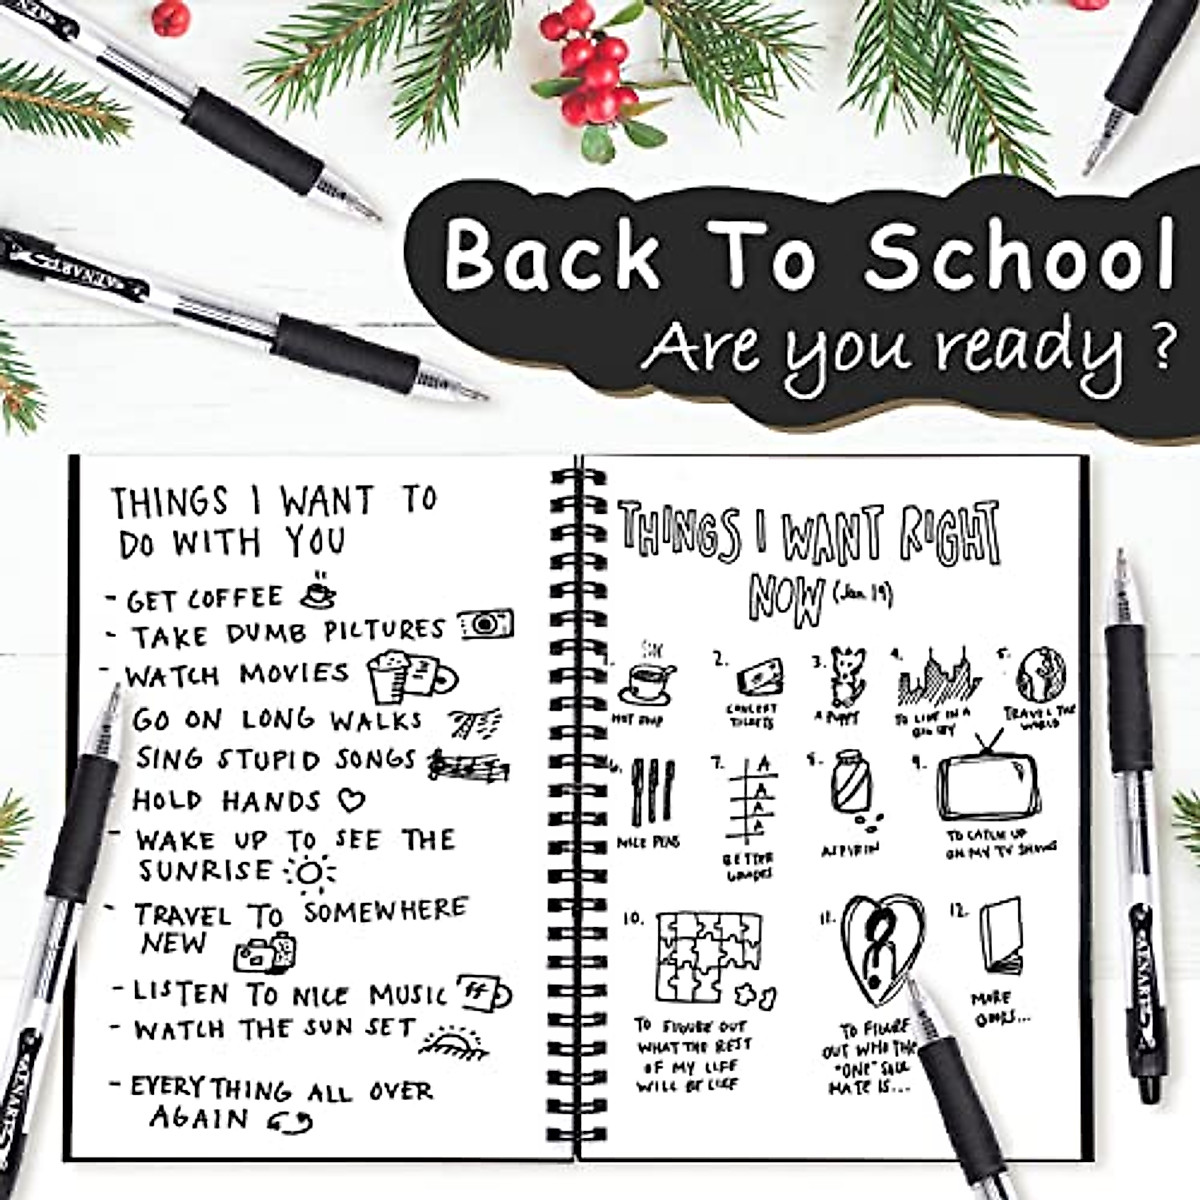 Back To School
Are you ready ?
THINGS I WANT TO
DO WITH YOU
- GET COFFEE
- TAKE DUMB PICTURES
- WATCH MOVIES
GO ON LONG WALKS
SING STUPID SONGS
HOLD HANDS
- WAKE UP TO SEE THE
SUNRISE
- TRAVEL TO SOMEWHERE
NEW
- LISTEN TO NICE MUSIC
- WATCH THE SUN SET
- EVERYTHING ALL OVER
AGAIN
THINGS I WANT RIGHT
NOW (Jan 19)
2.
3.
4.
5.
CONCERT
TICKETS
A PUPPY
TO LIVE IN A
BIG CITY
TRAVEL THE
WORLD
7.
8.
9.
A
A
A
A
NICE PENS
BETTER
GRADES
ASPIRIN
TO CATCH UP
ON MY TV SHOWS
10.
11.
12.
TO FIGURE OUT
WHAT THE REST
OF MY LIFE
WILL BE LIKE
TO FIGURE
OUT WHO THE
"ONE" SOUL
MATE IS...
MORE